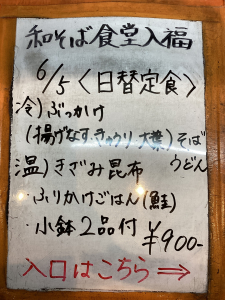 和そば食堂入福
6/5〈日替定食〉
冷)ぶっかけ
(揚げなす,きゅうり,大葉)そば
うどん
温)きざみ昆布
・ふりかけごはん(鮭)
・小鉢2品付 ¥900-
入口はこちら⇒